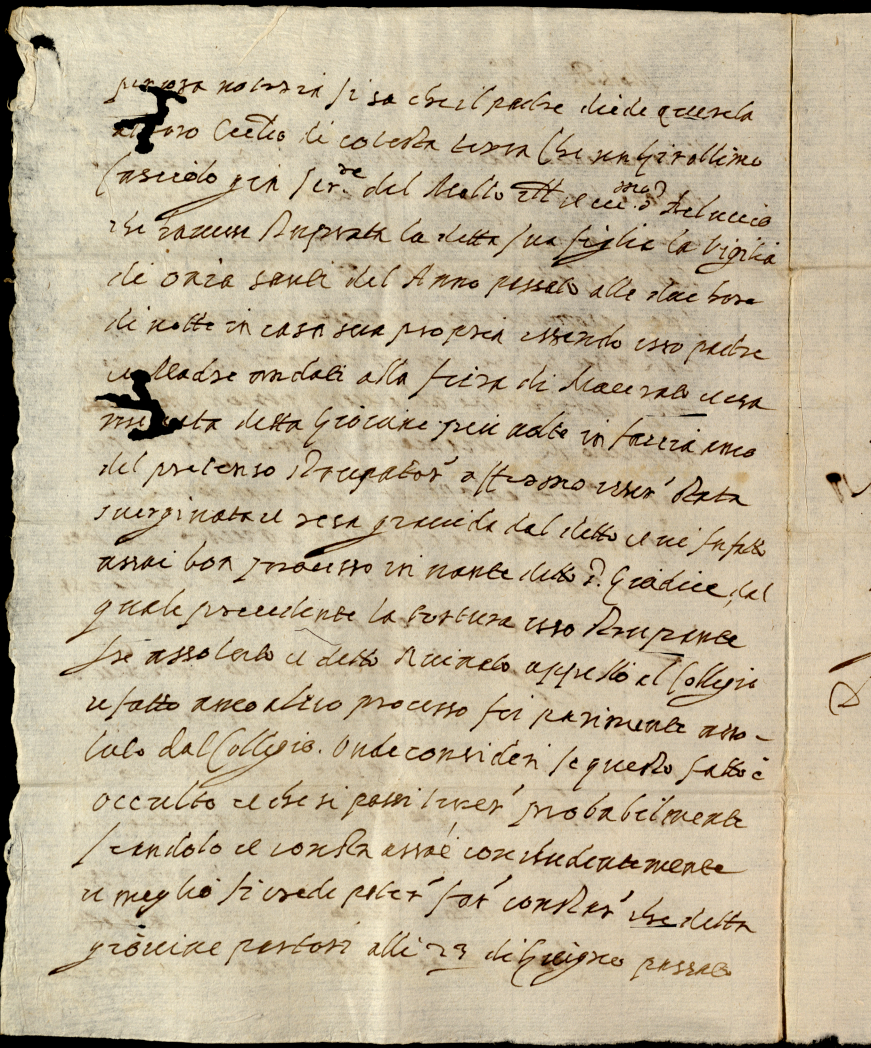 notitia si sa che il padre diede querela
di cotesta terra che un Girollimo
gia ser.re del
che havesse stuprata la detta sua figlia la Vigilia
di ogni santi del Anno passato alle due hore
di notte in casa sua propria essendo esso padre
et Madre andati alla fiera di Macerata et esa
detta Giovine piu volte in faccia anco
del pretenso stupator' affermò esser' stata
sverginata et resa gravida dal detto et ne fu fatto
assai bon processo in nante detto S. Giudice, dal
quale precedente la tortura esso stuprante
fu assoluto et detto appellò al Collegio
et fatto anco altro processo foi parimente asso-
luto dal Collegio. Onde consideri se questo fatto è
occulto et che si possi tener' probabilmente
scandolo et consta assai concludentemente
et meglio si crede poter' far' constar' che detta
giovine partorì alli 23 di Giugno passato